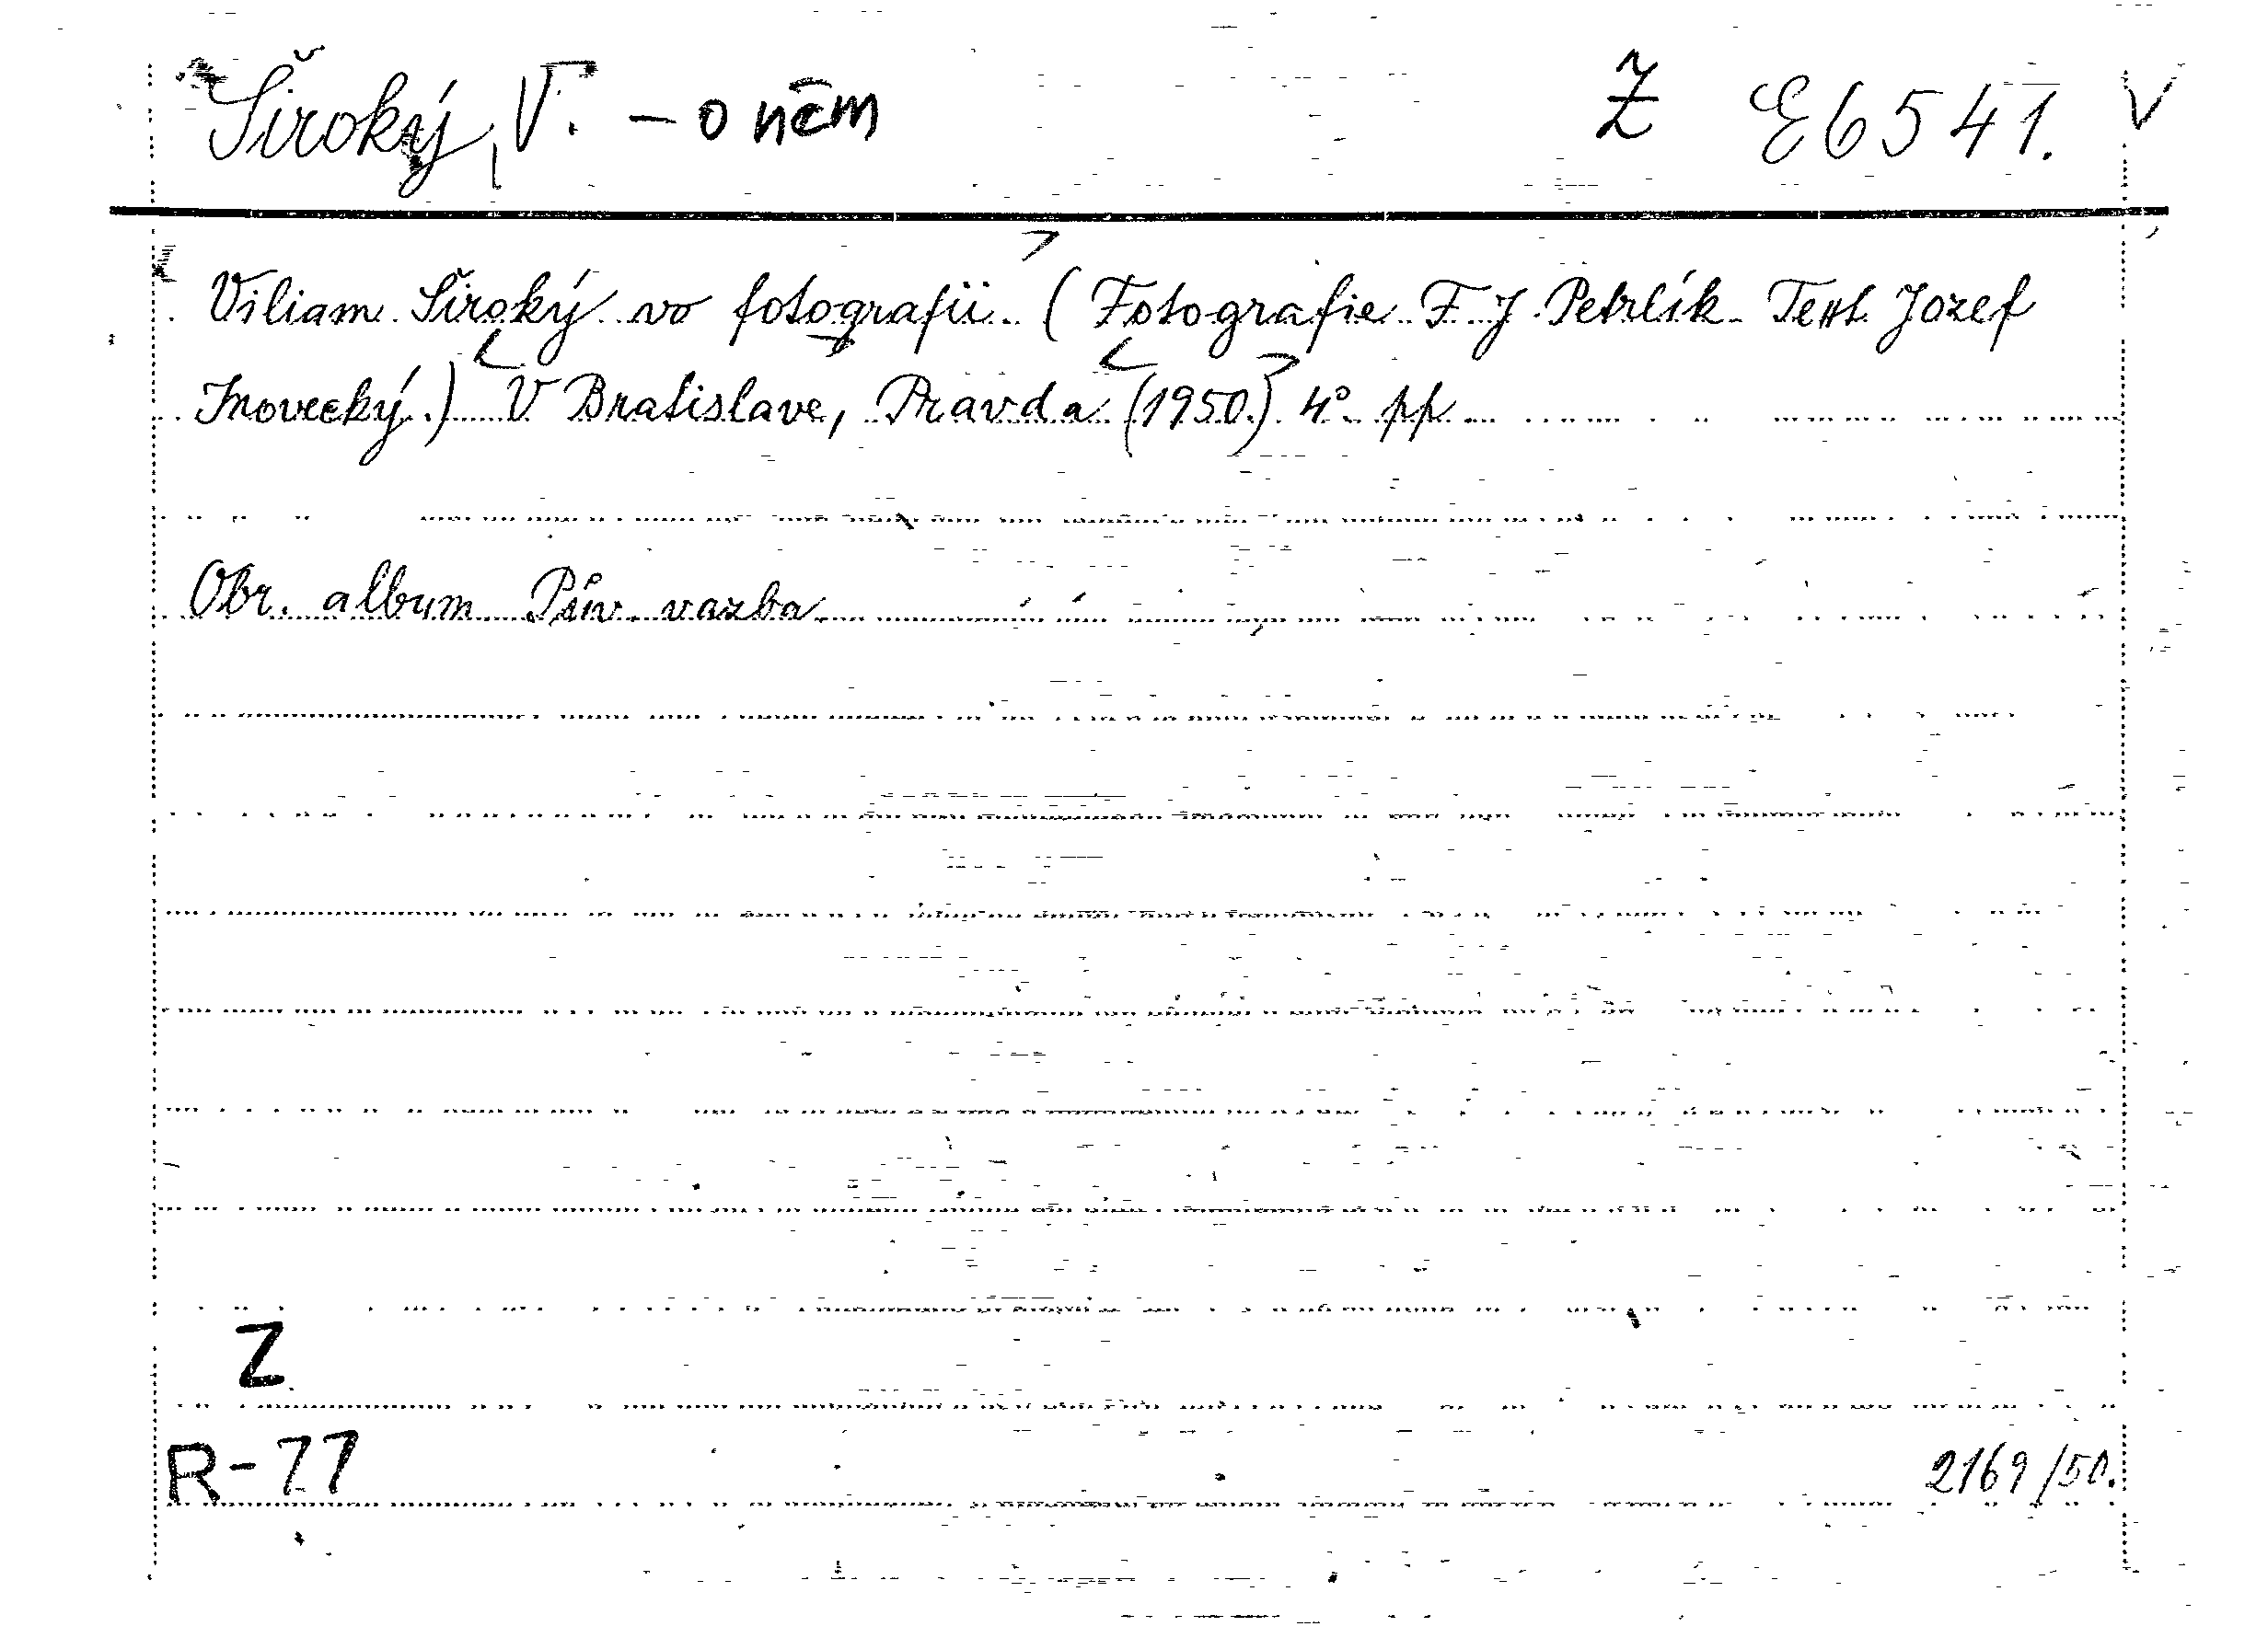 Široký, V. – o něm Ž E 6541. V
Viliam Široký vo fotografii (Fotografie F. J. Petrlík. Text Jozef
Inovecký.) V Bratislave, Pravda (1950.) 4° pp
Obr. album Pův. vazba
Z
R-77
2169/50.